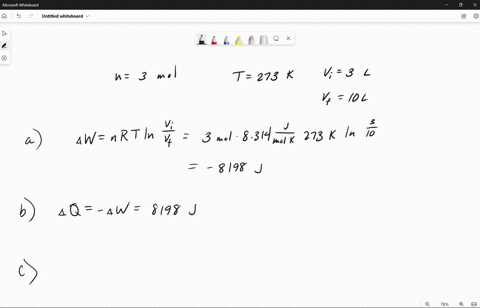 Microsoft Whiteboard
Untitled whiteboard
n = 3 mol T = 273 K Vi = 3 L
Vf = 10 L
a) ΔW = nRT ln Vi/Vf = 3 mol · 8.314 J/mol K 273 K ln 3/10
= - 8198 J
b) ΔQ = - ΔW = 8198 J
c)
78%